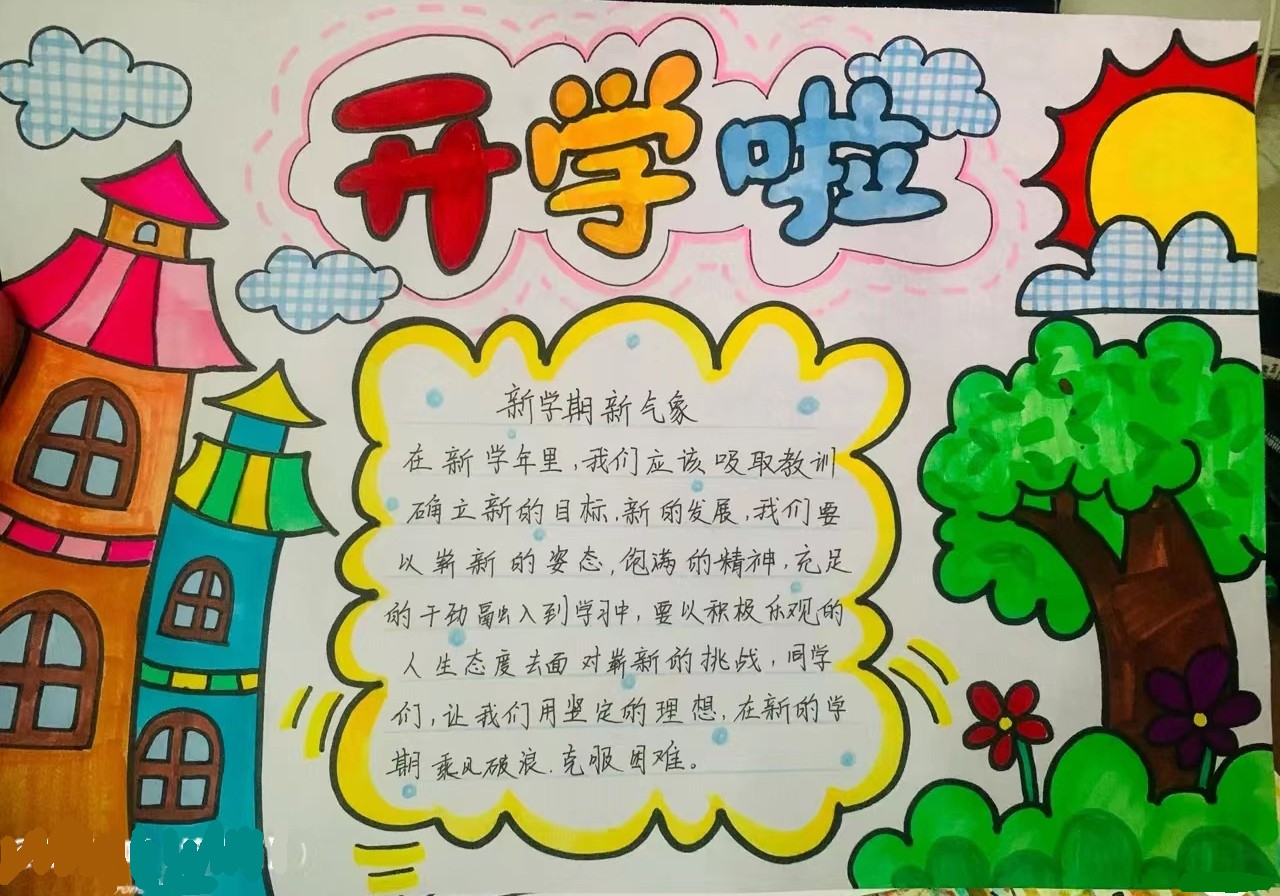 开学啦
新学期新气象
在新学年里,我们应该吸取教训
确立新的目标,新的发展,我们要
以崭新的姿态,饱满的精神,充足
的干劲融入到学习中,要以积极乐观的
人生态度去面对崭新的挑战,同学
们,让我们用坚定的理想,在新的学
期乘风破浪.克服困难。